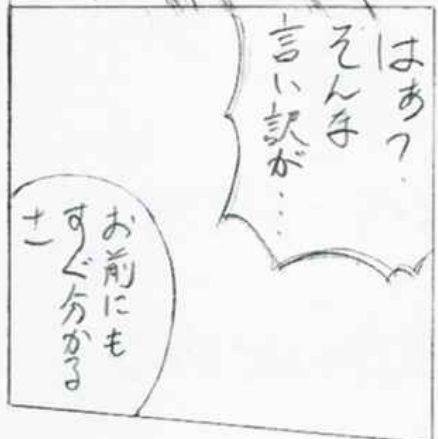 はあ?
そんな
言い訳が…
お前にも
すぐ分かる
さ